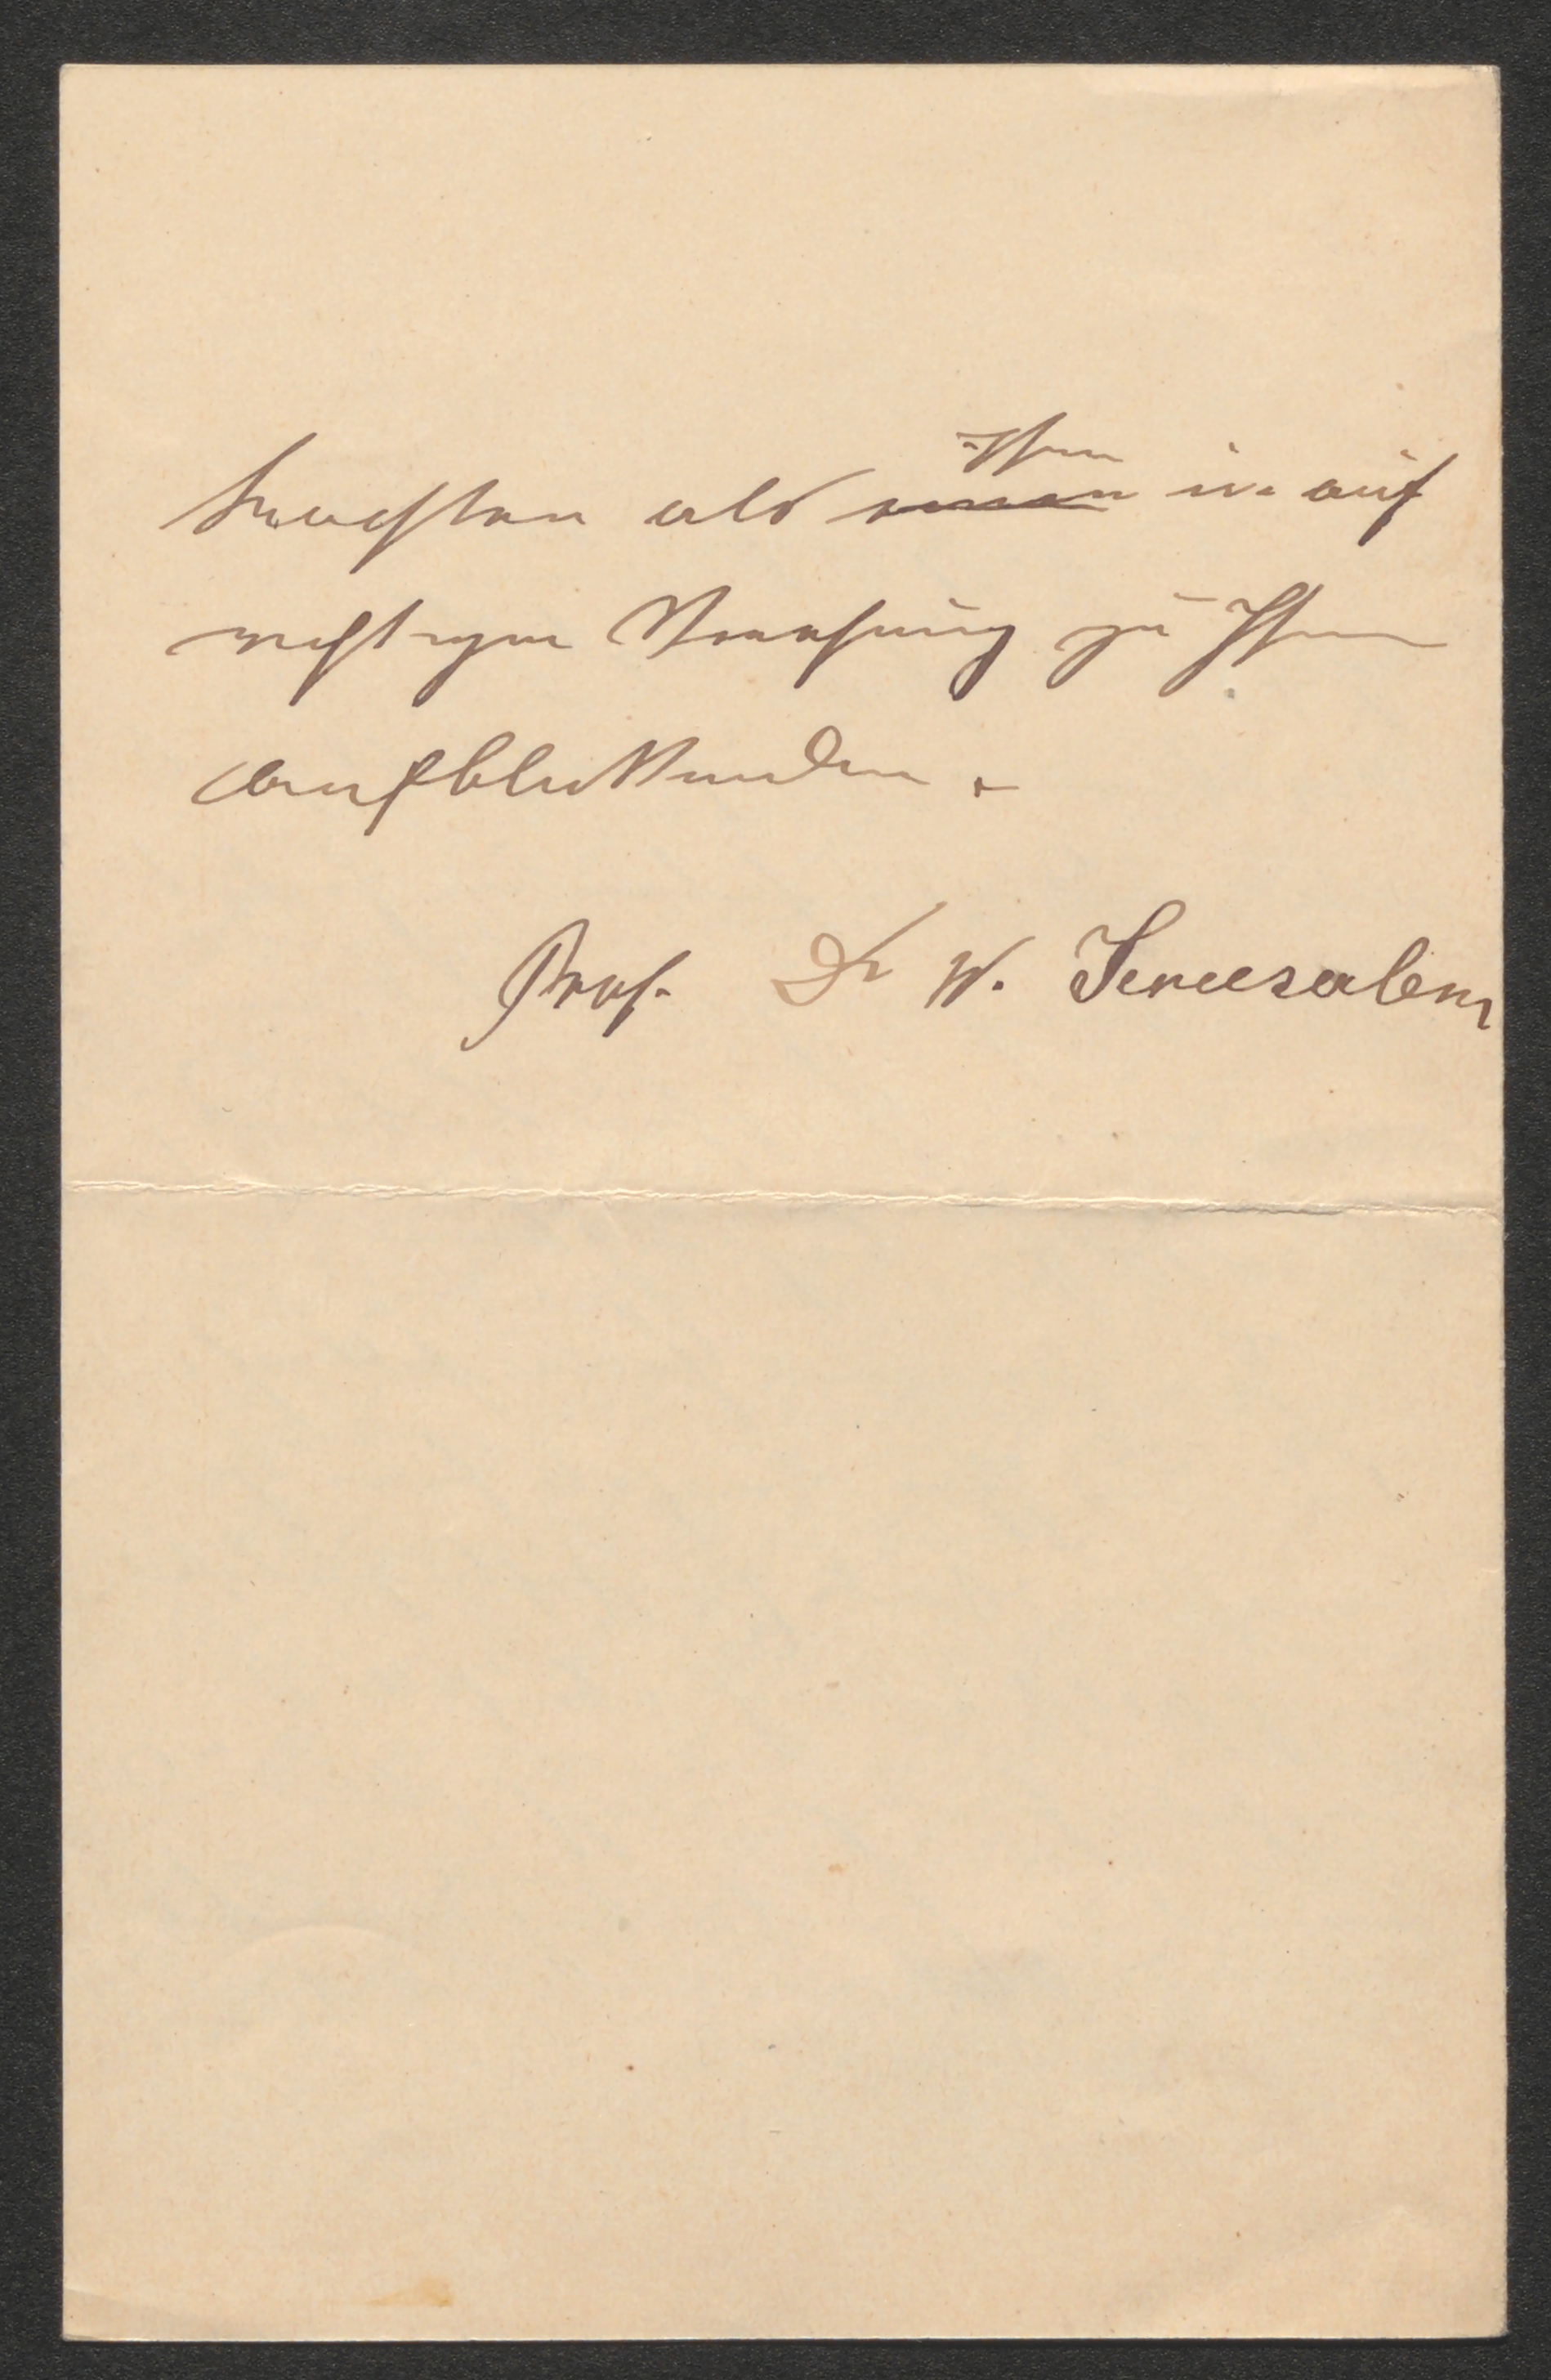 betrachten als Ihren u. auf
richtiger Verehrung zu Ihnen
aufblickenden.
Prof. Dr W. Jerusalem